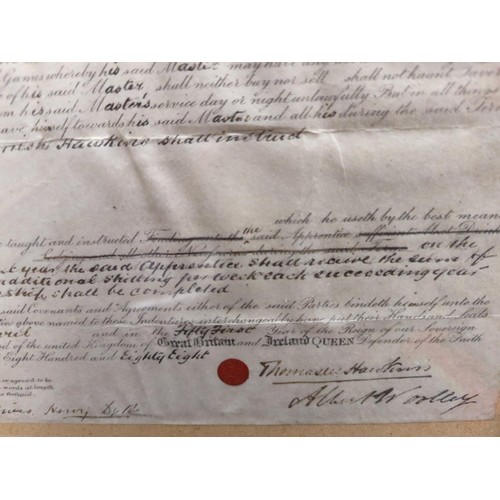 Games whereby his said Master may have any
of his said Master shall neither buy nor sell shall not haunt Taver
his said Master's service day or night unlawfully But in all things
himself towards his said Master and all his during the said Ter
Hawkins shall instruct
which he useth by the best mean
taught and instructed the said Apprentice
on the
year the said Apprentice shall receive the sum of
additional shilling per week each succeeding year
ship shall be completed
said Covenants and Agreements either of the said Parties bindeth himself unto the
above named to these Indentures interchangeably have put their Hands and Seals
and in the Fifty First Year of the Reign of our Sovereign
of the united kingdom of Great Britain and Ireland QUEEN Defender of the Faith
Eight Hundred and Eighty Eight
Thomasin Hawkins
Albert Woolley
Henry